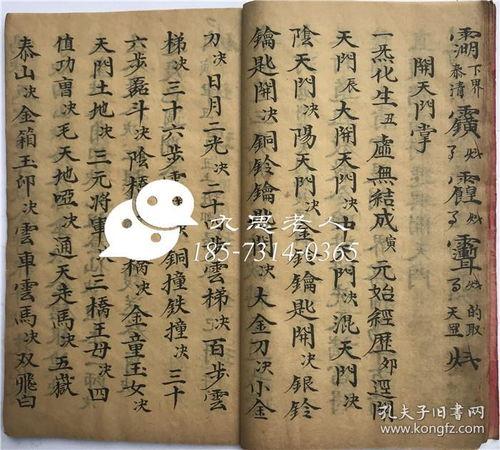 下界
泰清
的取
天罡
開天門掌
一炁化生丑虛無結成寅元始經歷卯逕開
天門辰大開天門决中天門决混天門决
陰天門决陽天門决金鈴鑰匙開决銀鈴
鑰匙開决銅鈴鑰匙開决大金刀决小金
刀决日月二光决二十四步雲梯决百步雲
梯决三十六步雲 銅撞铁撞决三十
六步 斗决陰橋 橋决金童玉女决
天門土地决三元將軍 三橋王母决四
值功曹决毛天地啞决通天走馬决五嶽
泰山决金箱玉印决雲車雲馬决双飛白
文思老人
185-7314-0365
孔夫子旧书网
www.kongfz.com